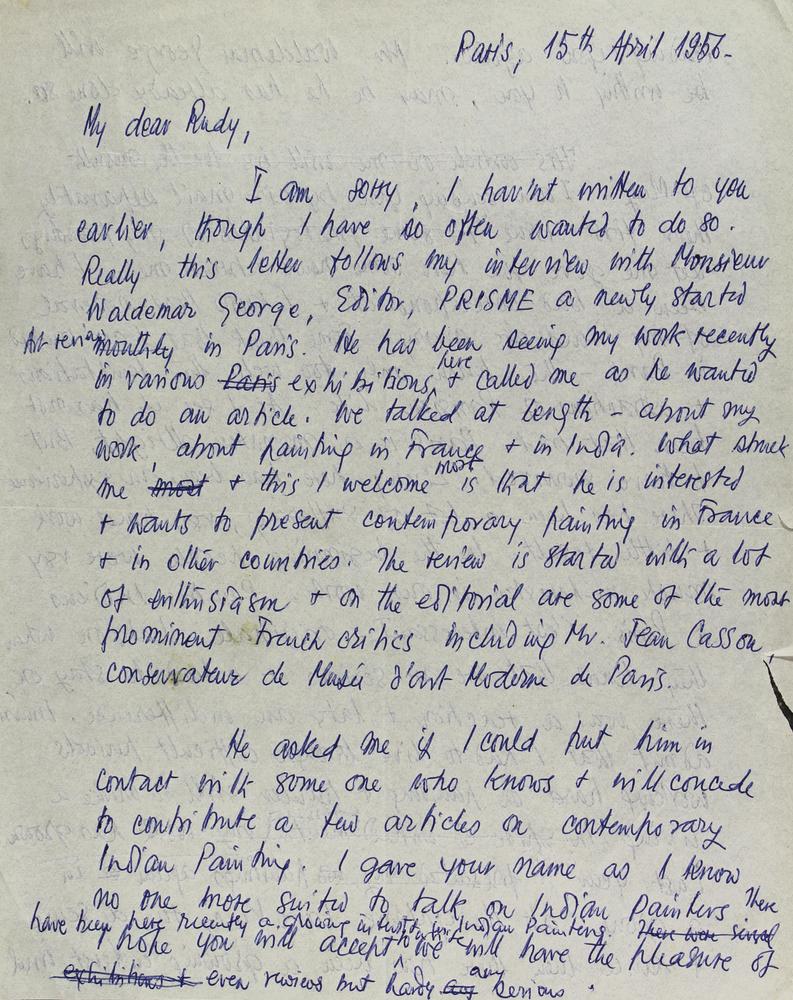 Paris, 15th April 1956.
My dear Rudy,
I am sorry, I hav'nt written to you
earlier, though I have so often wanted to do so.
Really this letter follows my interview with Monsieur
Waldemar George, Editor, PRISME a newly started
Art review monthly in Paris. He has been seeing my work recently
in various Paris exhibitions, here + called me as he wanted
to do an article. We talked at length – about my
work, about painting in France + in India. What struck
me most + this I welcome most is that he is interested
+ wants to present contemporary painting in France
+ in other countries. The review is started with a lot
of enthusiasm + on the editorial are some of the most
prominent French critics including Mr. Jean Cassou,
conservateur de Musée d'art Moderne de Paris.
He asked me if I could put him in
contact with some one who knows + will concede
to contribute a few articles on contemporary
Indian Painting I gave your name as I know
no one more suited to talk on Indian Painters There
have been here recently a growing interest in Indian Painting. There were several
I hope you will accept + we will have the pleasure of
exhibitions + even reviews but hardy any any serious.